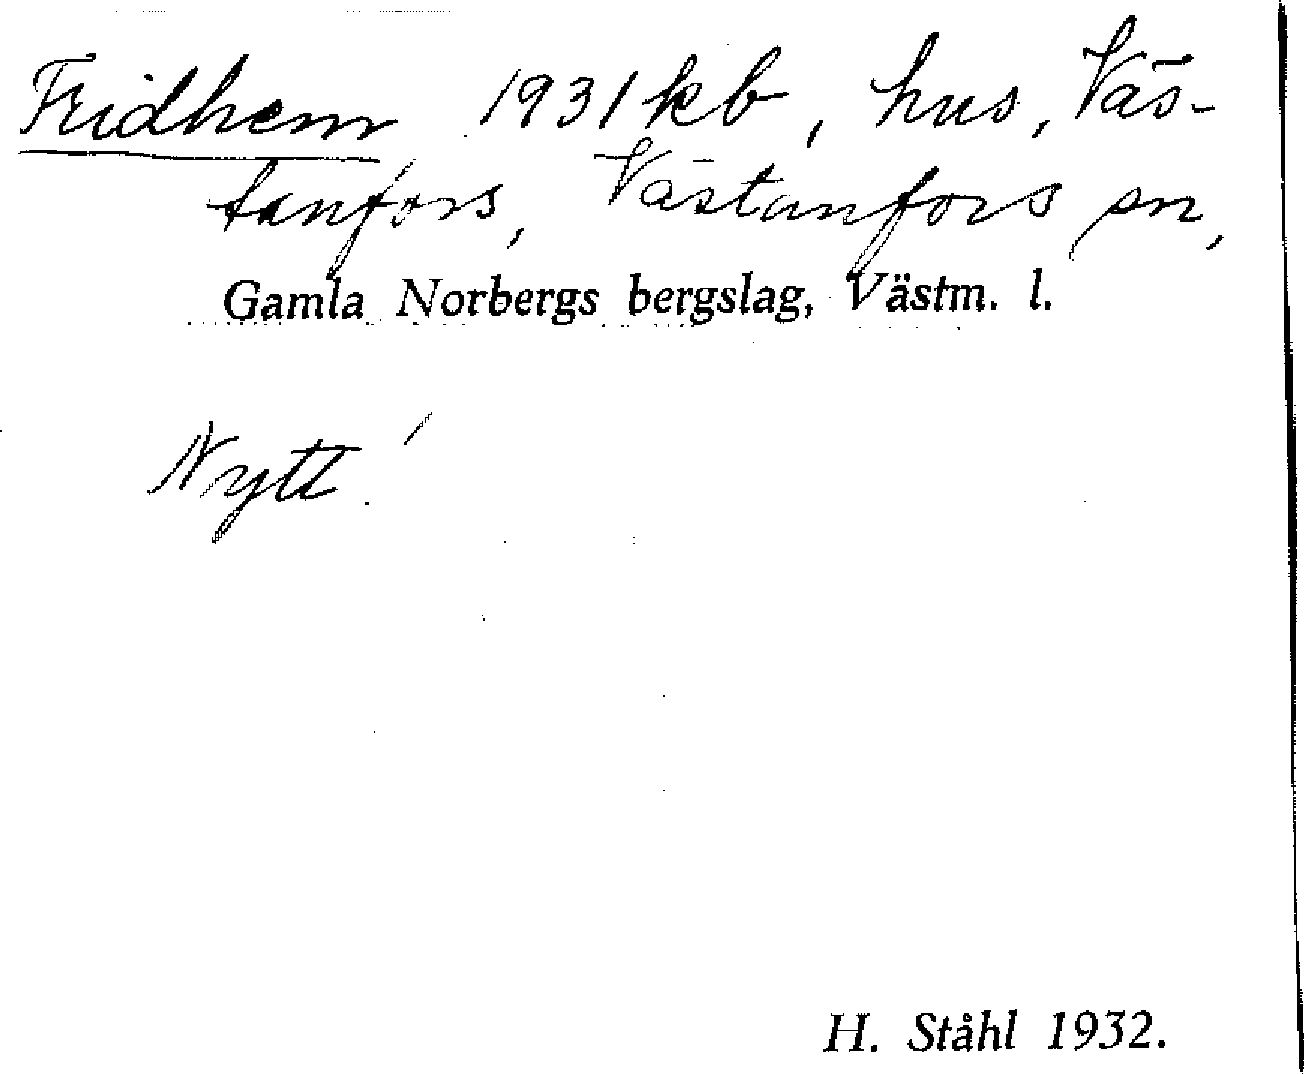 Fridhem 1931 kb, hus, Väs-
tanfors, Västanfors sn,
Gamla Norbergs bergslag, Västm. l.
Nytt!
H. Ståhl 1932.